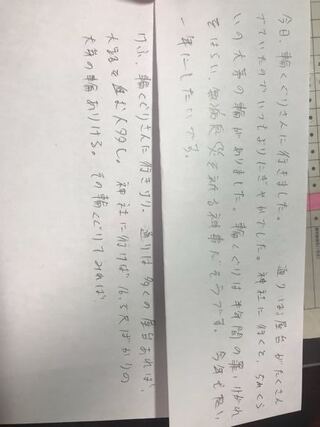 今日、輪くぐりさんに行きました。 通りは屋台がたくさん
でていたのでいつもよりにぎやかでした。神社に行くと、5mくら
いの大茅の輪がありました。輪くぐりは半年間の罪、けがれ
をはらい、無病息災を祈る神事だそうです。今年も良い
一年にしたいです。
けふ、輪くぐりさんに行きけり。通りは多くの屋台あれば、
大路を進む人多し。神社に行けば16.5尺ばかりの
大茅の輪ありける。その輪くぐりてみれば、